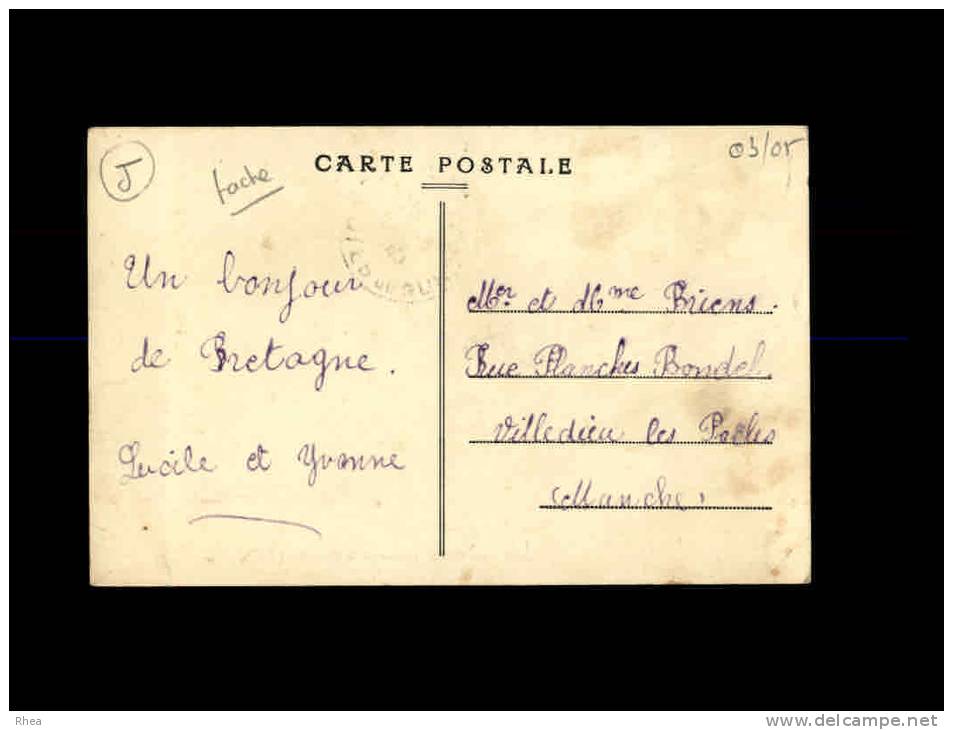 J
tache
CARTE POSTALE
03/05
Un bonjour
de Bretagne.
Lucile et Yvonne
Mer et Mme Briens.
Rue Planches Bondel.
Villedieu les Poeles
(Manche)
Rhea
www.delcampe.net